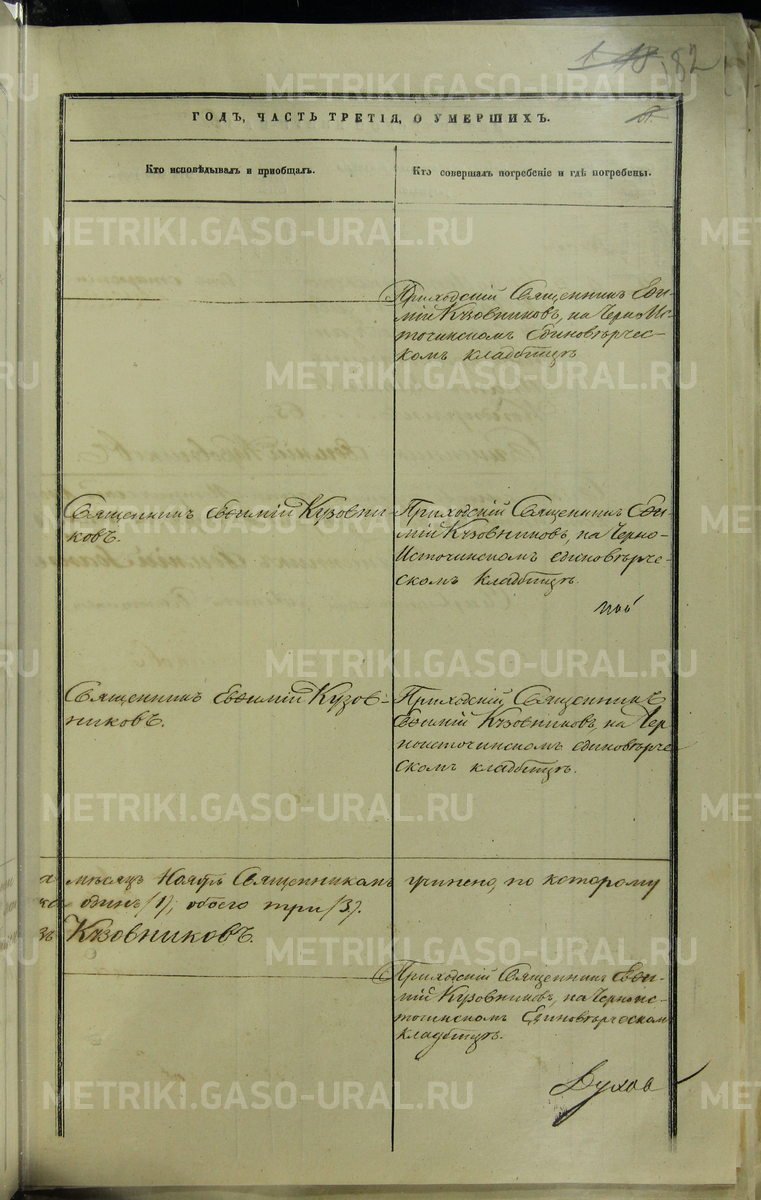 82
ГОДЪ, ЧАСТЬ ТРЕТІЯ, О УМЕРШИХЪ.
Кто исповѣдывалъ и пріобщалъ.
Кто совершалъ погребеніе и гдѣ погребены.
Приходскій Священникъ Евѳи-
мій Кузовниковъ, на Черно-Ис-
точинскомъ единовѣрчес-
комъ кладбищѣ
Священникъ Евѳимій Кузовни-
ковъ.
Приходскій Священникъ Евѳи-
мій Кузовниковъ, на Черно-
Источинскомъ единовѣрче-
скомъ кладбищѣ.
Священникъ Евѳимій Кузов-
никовъ.
Приходскій Священникъ
Евѳимій Кузовниковъ, на Чер
ноисточинскомъ единовѣрче
скомъ кладбищѣ.
мѣсяцъ Ноябрь Священникомъ учинено, по которому
одинъ /1/, обоего три /3/.
Кузовниковъ.
Приходскій Священникъ Евѳи-
мій Кузовниковъ, на Черноис-
точинскомъ Единовѣрческомъ
кладбищѣ.
Духов
METRIKI.GASO-URAL.RU